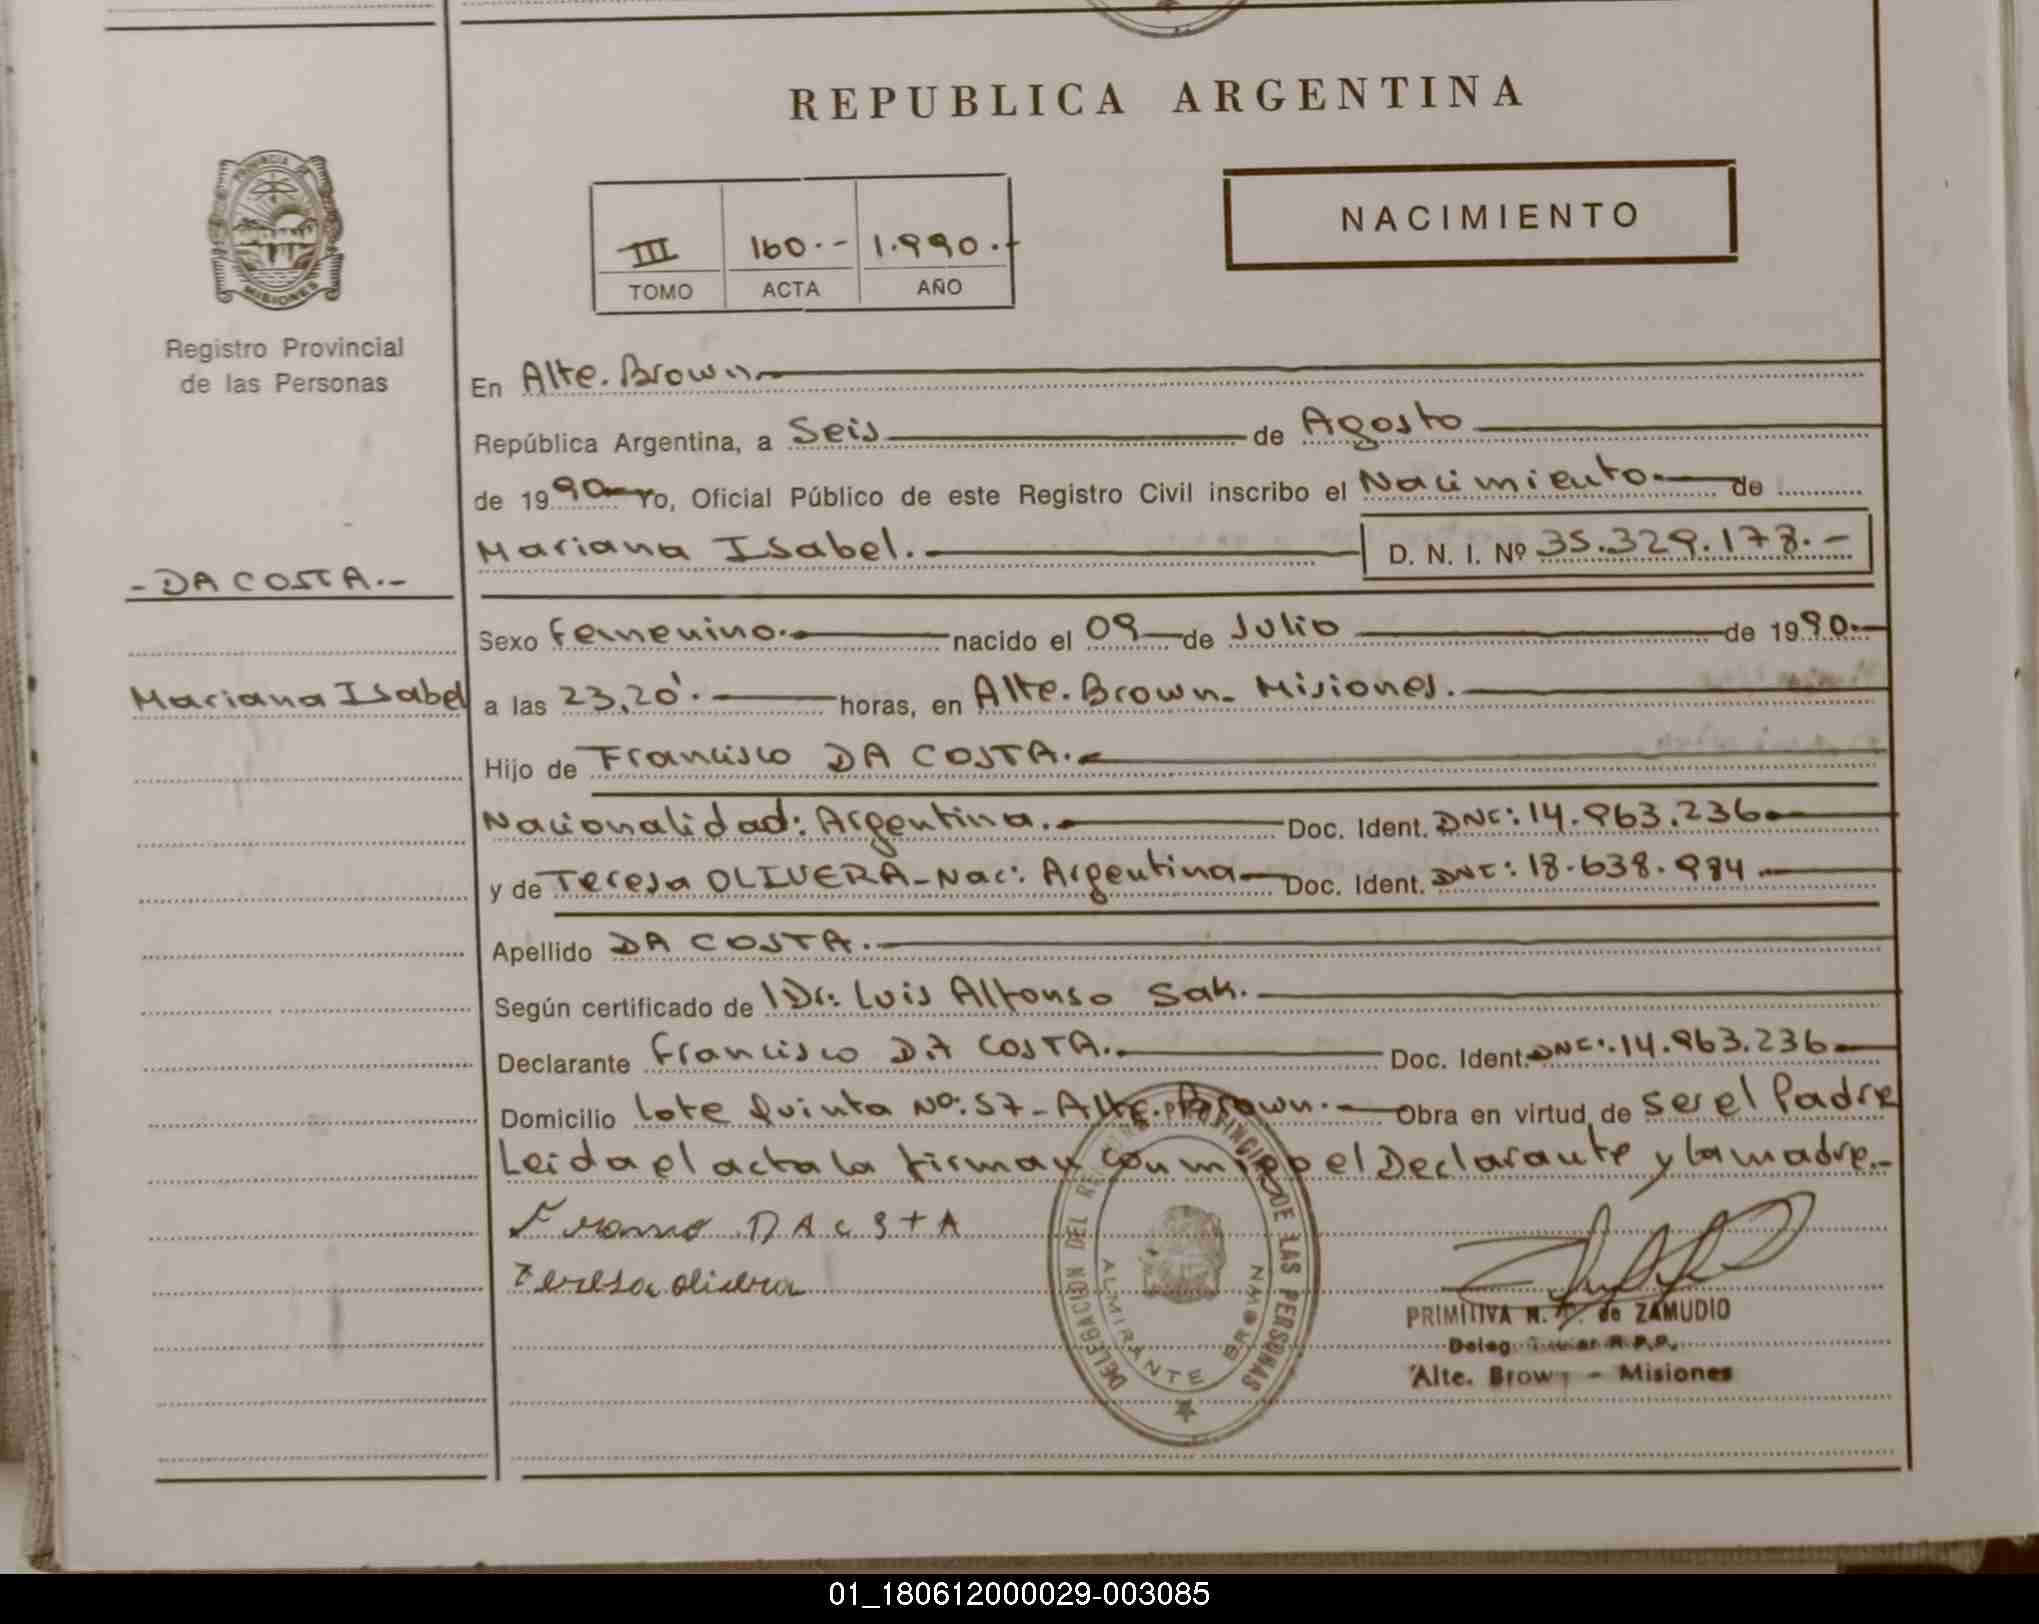 REPUBLICA ARGENTINA
NACIMIENTO
III 160.- 1.990.-
TOMO ACTA AÑO
PROVINCIA DE
MISIONES
Registro Provincial
de las Personas
En Alte. Brown
República Argentina, a Seis de Agosto
de 1990 Yo, Oficial Público de este Registro Civil inscribo el Nacimiento de
Mariana Isabel. D. N. I. Nº 35.329.178.-
- DA COSTA.-
Sexo femenino. nacido el 09 de Julio de 1990.
Mariana Isabel
a las 23,20'. horas, en Alte. Brown - Misiones.
Hijo de Francisco DA COSTA.
Nacionalidad: Argentina. Doc. Ident. DNI: 14.963.236
y de Teresa OLIVERA - Nac: Argentina Doc. Ident. DNI: 18.638.984
Apellido DA COSTA.
Según certificado de Dr: Luis Alfonso Sak.
Declarante Francisco DA COSTA. Doc. Ident. DNI: 14.963.236
Domicilio Lote Quinta Nº: 57 - Alte. Brown. Obra en virtud de ser el Padre
Leida el acta la firman conmigo el Declarante y la madre.-
DA CSTA
Teresa olivera
DELEGACION DEL REGISTRO PROVINCIAL DE LAS PERSONAS
ALMIRANTE BROWN
PRIMITIVA N. de ZAMUDIO
Deleg. R.P.P.
Alte. Brown - Misiones
01_180612000029-003085